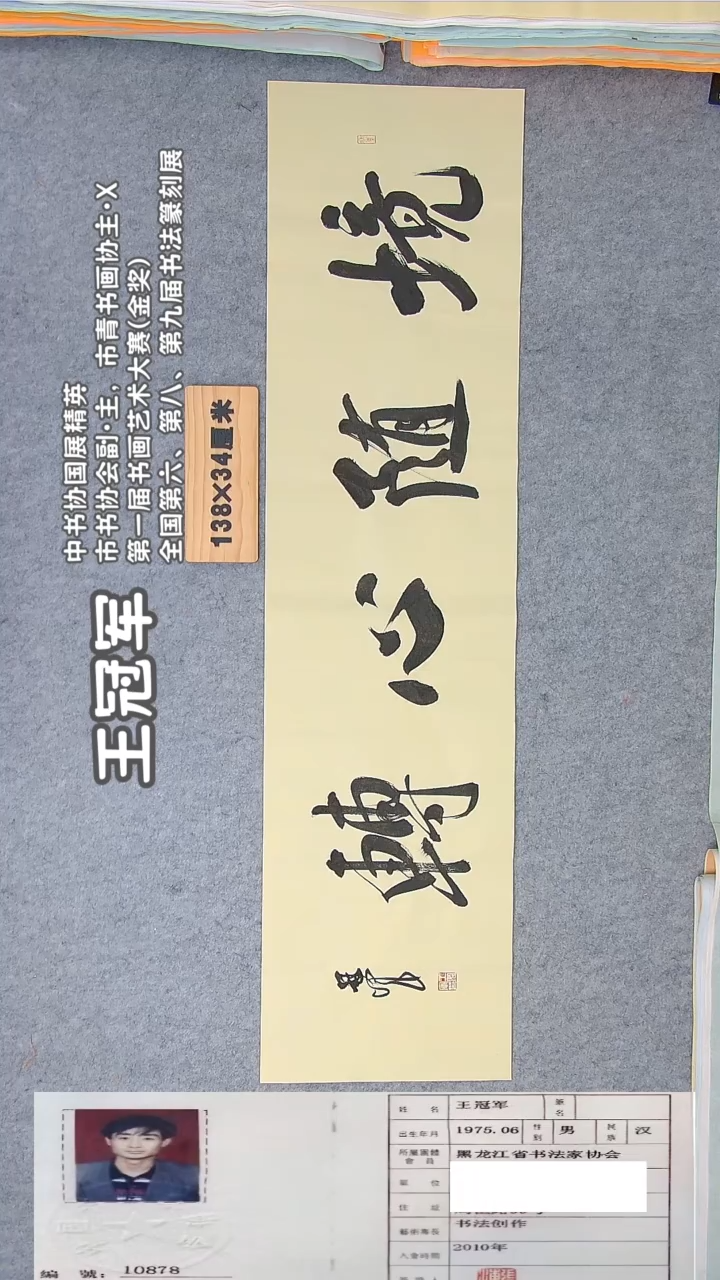 境随心轉
王冠军
中书协国展精英
市书协会副·主，市青书画协主·X
第一届书画艺术大赛(金奖)
全国第六、第八、第九届书法篆刻展
138×34厘米
姓 名 王冠军 筆名
出生年月 1975.06 性别 男 民族 汉
所屬團體會員 黑龙江省书法家协会
單 位
住 址
藝術專長 书法创作
入會時間 2010年
編 號: 10878